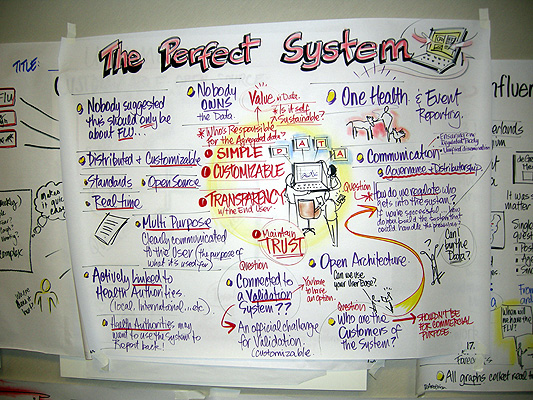 The Perfect System
TITLE:
FLU
Nobody suggested
this should only be
about FLU...
Nobody
OWNS
the Data.
Value of Data.
* Is it self
Sustainable?
* Who's Responsible
for the Aggregated data?
One Health & Event
Reporting.
Distributed & Customizable
Standards
Open Source
Real-time
SIMPLE
CUSTOMIZABLE
TRANSPARENCY
w/the End User
DATA
Maintain
TRUST
Communication
Governance & Distributorship
Question
* How do we regulate who
gets into the sustem?
If you're successful... how
do you build the system that
could handle the pressure?
Multi Purpose
Clearly communicated
to this User (the purpose of
what it's used for)
Can I
buy the
Data?
Actively Linked to
Health Authorities
(local, International...etc.
Health Authorities may
want to use the System to
Report back!
Question
Connected to
a Validation
System??
You have
to have
an option.
An official challenge
for Validation.
(Customizable
Open Architecture.
Can we use
your User Base?
Question
Who are the
Customers of
the System?
SHOULDN'T BE
FOR COMMERCIAL
PURPOSE.
nfluen
erlands
It was
matter
When will
we have the
FLU?
17.
All graphs collect read to
makes
complex